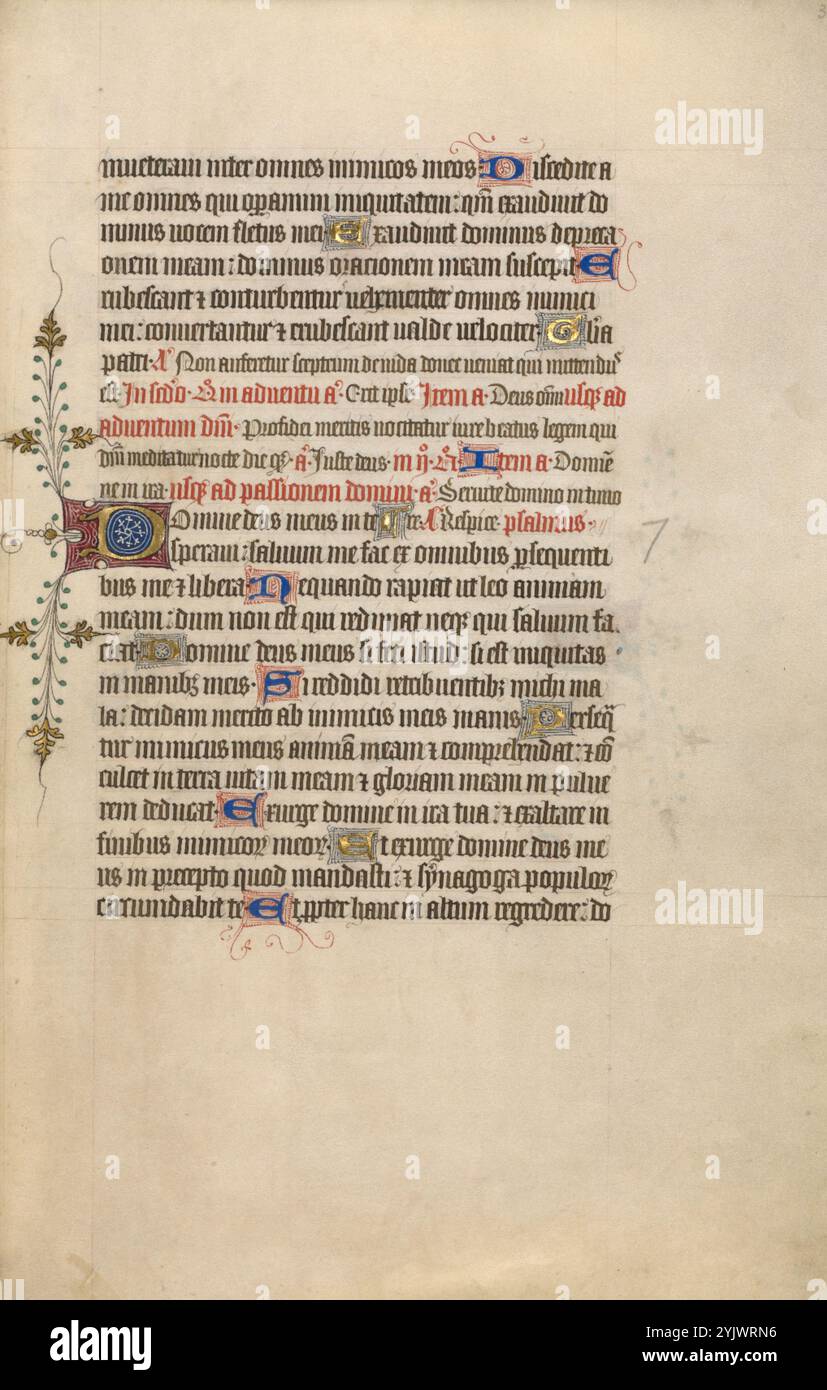 3
mueteraui inter omnes inimicos meos. Discedite a
me omnes qui operamini iniquitatem: qm̄ exaudiuit do
minus uocem fletus mei Exaudiuit dominus depreca
onem meam: dominus oracionem meam suscepit E
rubescant ⁊ conturbentur uehementer omnes inimici
mei: conuertantur ⁊ erubescant ualde uelociter. Glia
patri. Non auferetur sceptrum de iuda donec ueniat qui mittendus
est. In in aduentu a. Erit ipse Item a. Deus usq; ad
aduentum dm̄. Proficiet meritis uocitatur iure beatus legem qui
dm̄ meditatur nocte die q;. a. Iuste deus. Item a. Domine
ne in ira. usq; ad passionem domini. a. Seruite domino in timo
Domine deus meus in te re. Respice. psalmus.
speraui: saluum me fac ex omnibus persequenti
bus me ⁊ libera Nequando rapiat ut leo animam
meam: dum non est qui redimat neq; qui saluum fa
ciat Domine deus meus si feci istud: si est iniquitas
in manib; meis. Si reddidi retribuentib; michi ma
la: decidam merito ab inimicis meis inanis. Perseq̄
tur inimicus meus animā meam ⁊ comprehendat: ⁊ cō
culcet in terra uitam meam ⁊ gloriam meam in pulue
rem deducat. Exurge domine in ira tua: ⁊ exaltare in
finibus inimicoꝝ meoꝝ. Et exurge domine deus me
us in precepto quod mandasti: ⁊ synagoga populoꝝ
circumdabit te Et ppter hanc in altum regredere: do
7
alamy
a
alamy
Image ID: 2YJWRN6
www.alamy.com